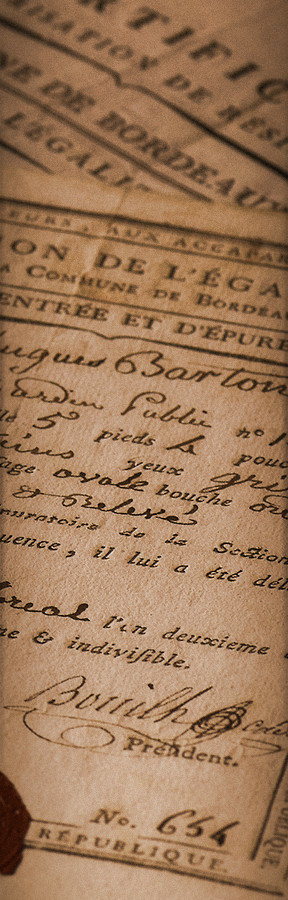 RTIFIC
ISATION DE RÉSI
NE DE BORDEAUX
L'ÉGALI
EURS, AUX ACCAPAR
ON DE L'ÉGA
A COMMUNE DE BORDEAU
ENTRÉE ET D'ÉPURE
ugues Barton
ardin Public n° 1
5 pieds 4 pouc
ains yeux gri
age ovale bouche
& Relevé
de la Section
uence, il lui a été dél
l'an deuxieme
ne & indivisible.
Borrilh
Président.
No. 654
RÉPUBLIQUE.